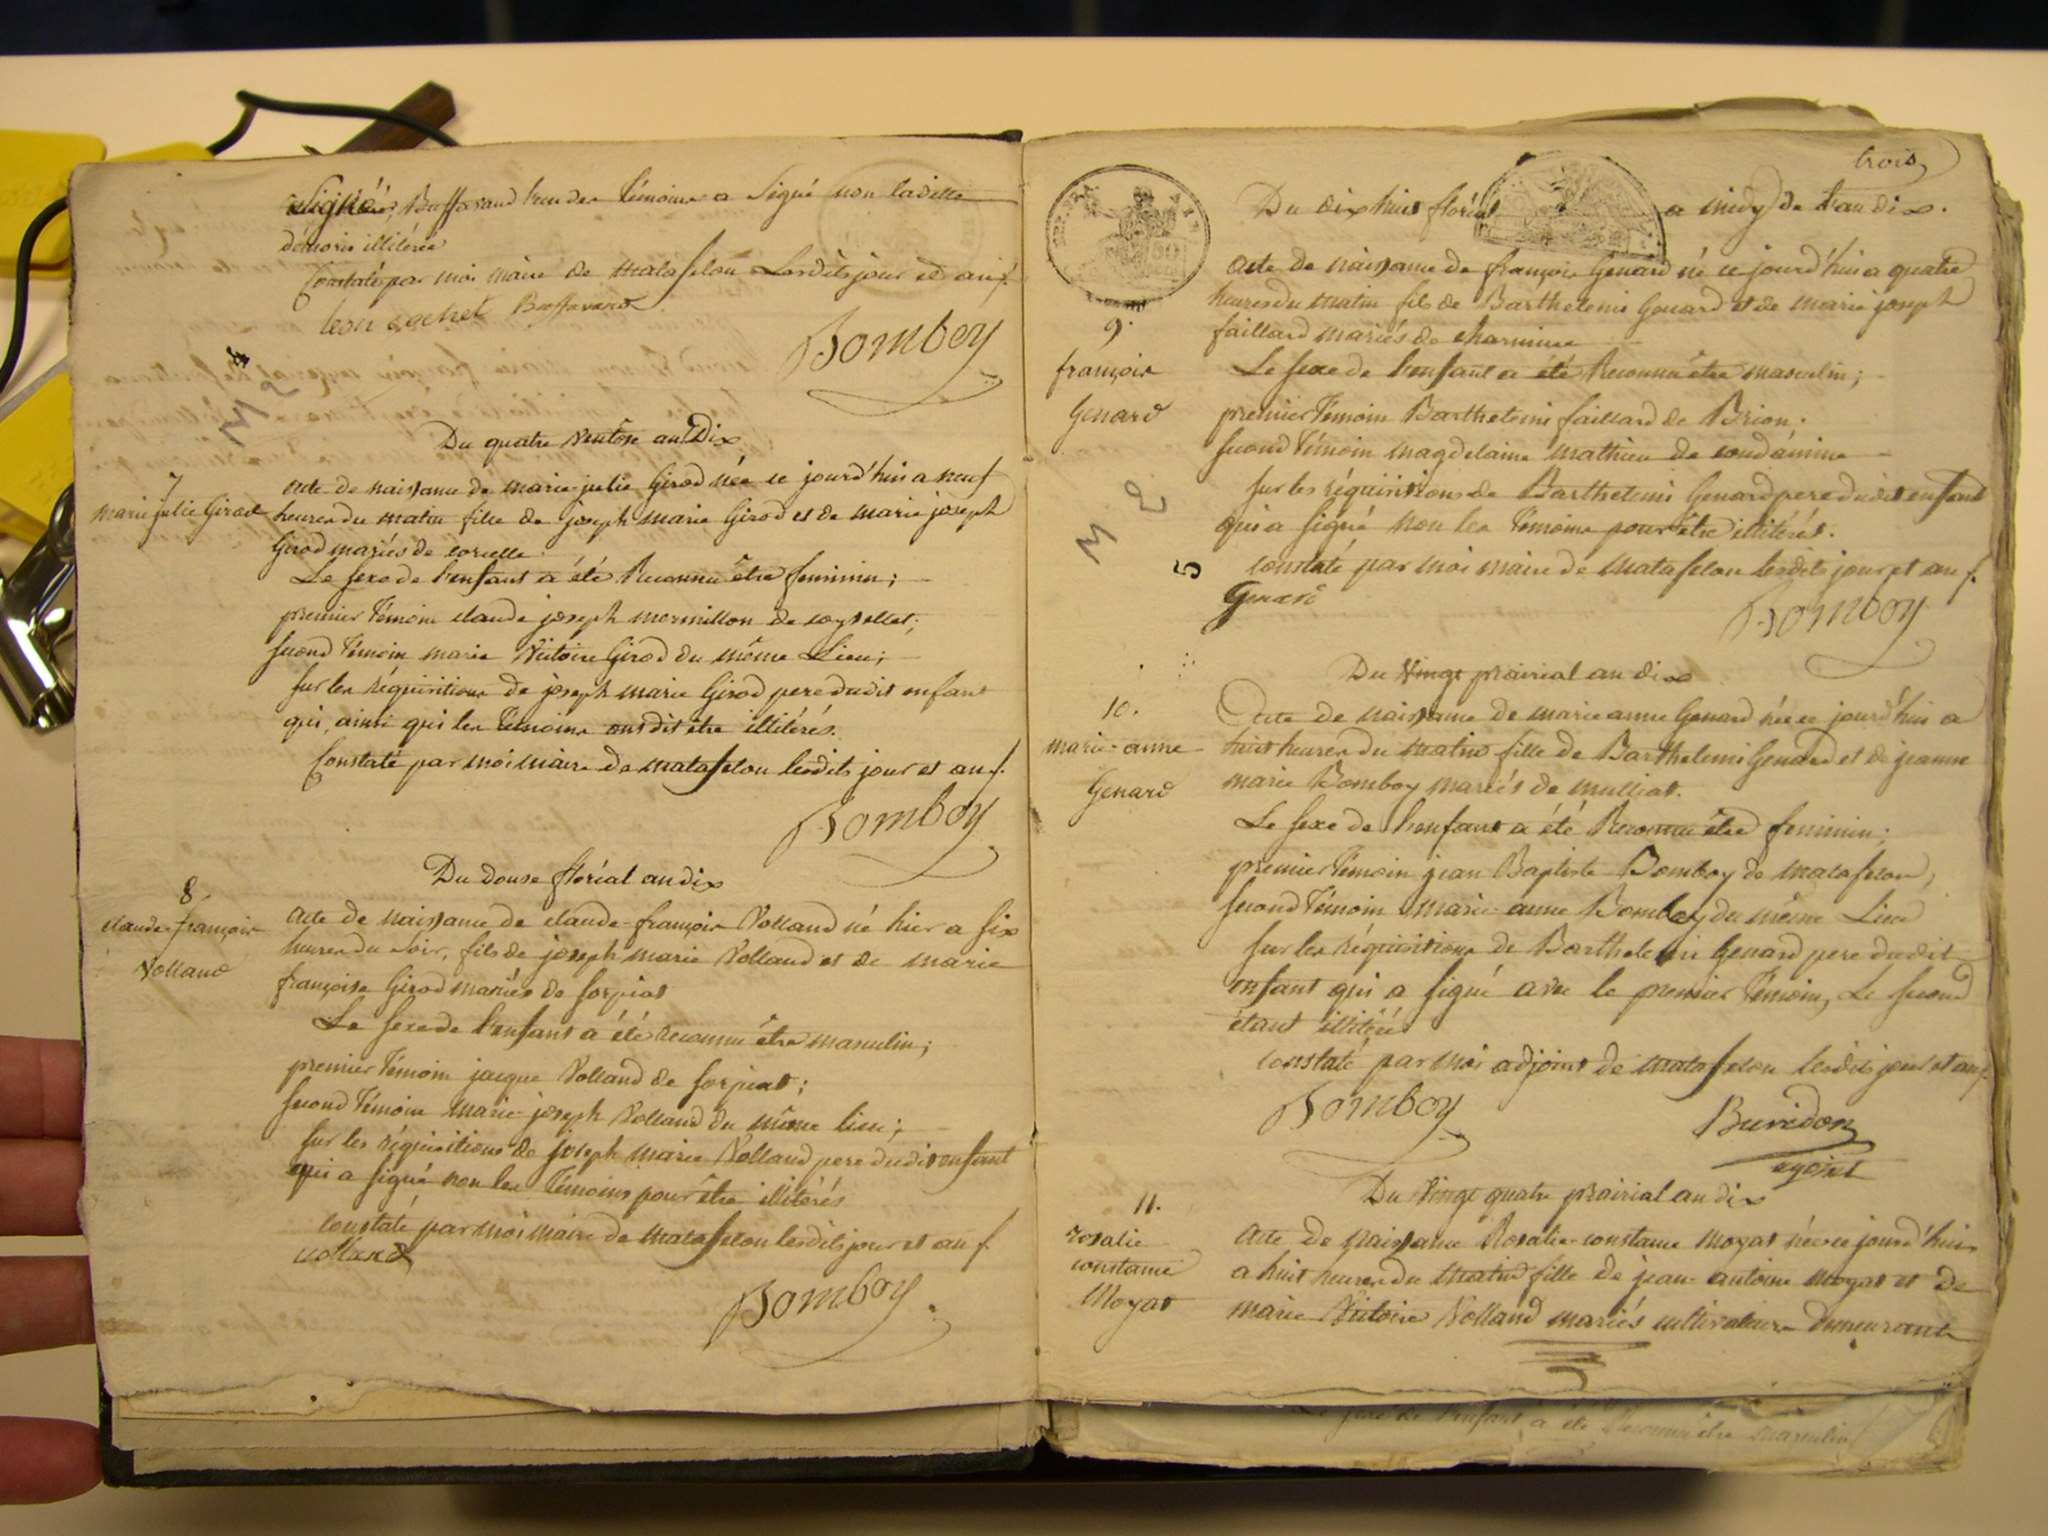 Signé, Baffavand l'un des Témoins a Signé non ladille
démoris illitérée
Constaté par moi maire de matafelon Lesdits jour et an ./.
leon sochet Baffavand
Bomboy
Du quatre Ventôse an Dix
7
marie julie Girod
acte de naissance de marie-julie Girod née ce jourd'hui a neuf
heures du matin fille de joseph marie Girod et de marie joseph
Girod mariés de corcelle.
Le sexe de l'enfant a été Reconnu être feminin;
premier Témoin claude joseph mermillon de coysellet;
second Témoin marie Victoire Girod du même Lieu;
sur les réquisitions de joseph marie Girod pere dudit enfant
qui, ainsi que les Témoins ont dit être illitérés.
Constaté par moi maire de matafelon lesdits jour et an ./.
Bomboy
Du douse floréal an dix
8
claude-françois
Volland
acte de naissance de claude-françois Volland né hier a six
heures du soir, fils de joseph marie Volland et de marie
françoise Girod mariés de sorpiat
Le sexe de l'enfant a été reconnu être masculin;
premier Témoin jacque Volland de sorpiat;
second Témoin marie-joseph Volland du même lieu;
sur les réquisitions de joseph marie Volland pere dudit enfant
qui a signé non les Témoins pour être illitérés
constaté par moi maire de matafelon lesdits jour et an ./.
volland
Bomboy
trois
Du dix huit floréal a midy de l'an dix.
9.
françois
Genard
acte de naissance de françois Genard né ce jourd'hui a quatre
heures du matin fils de Barthelemi Genard et de marie joseph
faillard mariés de charmine
Le sexe de l'enfant a été Reconnu être masculin;
premier Témoin Barthelemi faillard de Brion.
second Témoin magdelaine mathieu de condamine
sur les réquisitions de Barthelemi Genard pere dudit enfant
qui a signé non les Témoins pour être illitérés.
constaté par moi maire de matafelon lesdits jour et an ./.
Genard
Bomboy
Du Vingt prairial an dix
10.
marie-anne
Genard
Acte de naissance de marie anne Genard née ce jourd'hui a
huit heures du matin fille de Barthelemi Genard et de jeanne
marie Bomboy mariés de mulliat.
Le sexe de l'enfant a été Reconnu être feminin;
premier Témoin jean Baptiste Bomboy de matafelon,
second Témoin marie-anne Bomboy du même Lieu
sur les réquisitions de Barthelemi Genard pere dudit
enfant qui a signé avec le premier Témoin, Le second
étant illitéré
constaté par moi adjoint de matafelon lesdits jour et an ./.
Bomboy
Buridon
agoint
Du Vingt quatre prairial an dix
11.
rosalie
constance
Moyat
acte de naissance Rosalie-constance moyat née ce jourd'hui
a huit heures du matin fille de jean-antoine moyat et de
marie Victoire Volland mariés cultivateurs demeurant
Le sexe de l'enfant a été Reconnu être masculin